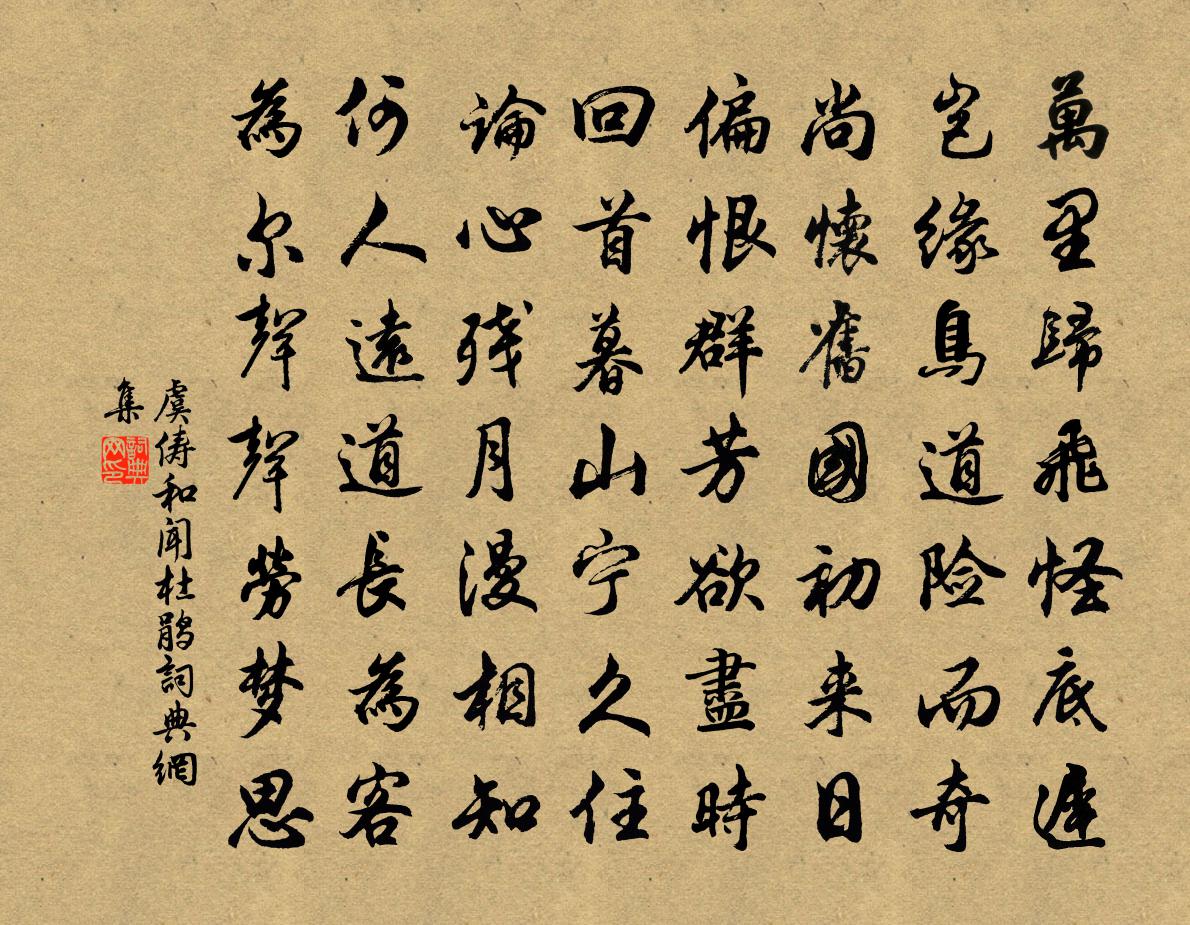 萬里歸飛怪底遲
豈緣鳥道险而奇
尚懷舊國初来日
偏恨群芳欲盡時
回首暮山宁久住
論心残月漫相知
何人遠道長為客
為尔聲聲勞梦思
虞俦和闻杜鹃詞典網
集
詞典网印